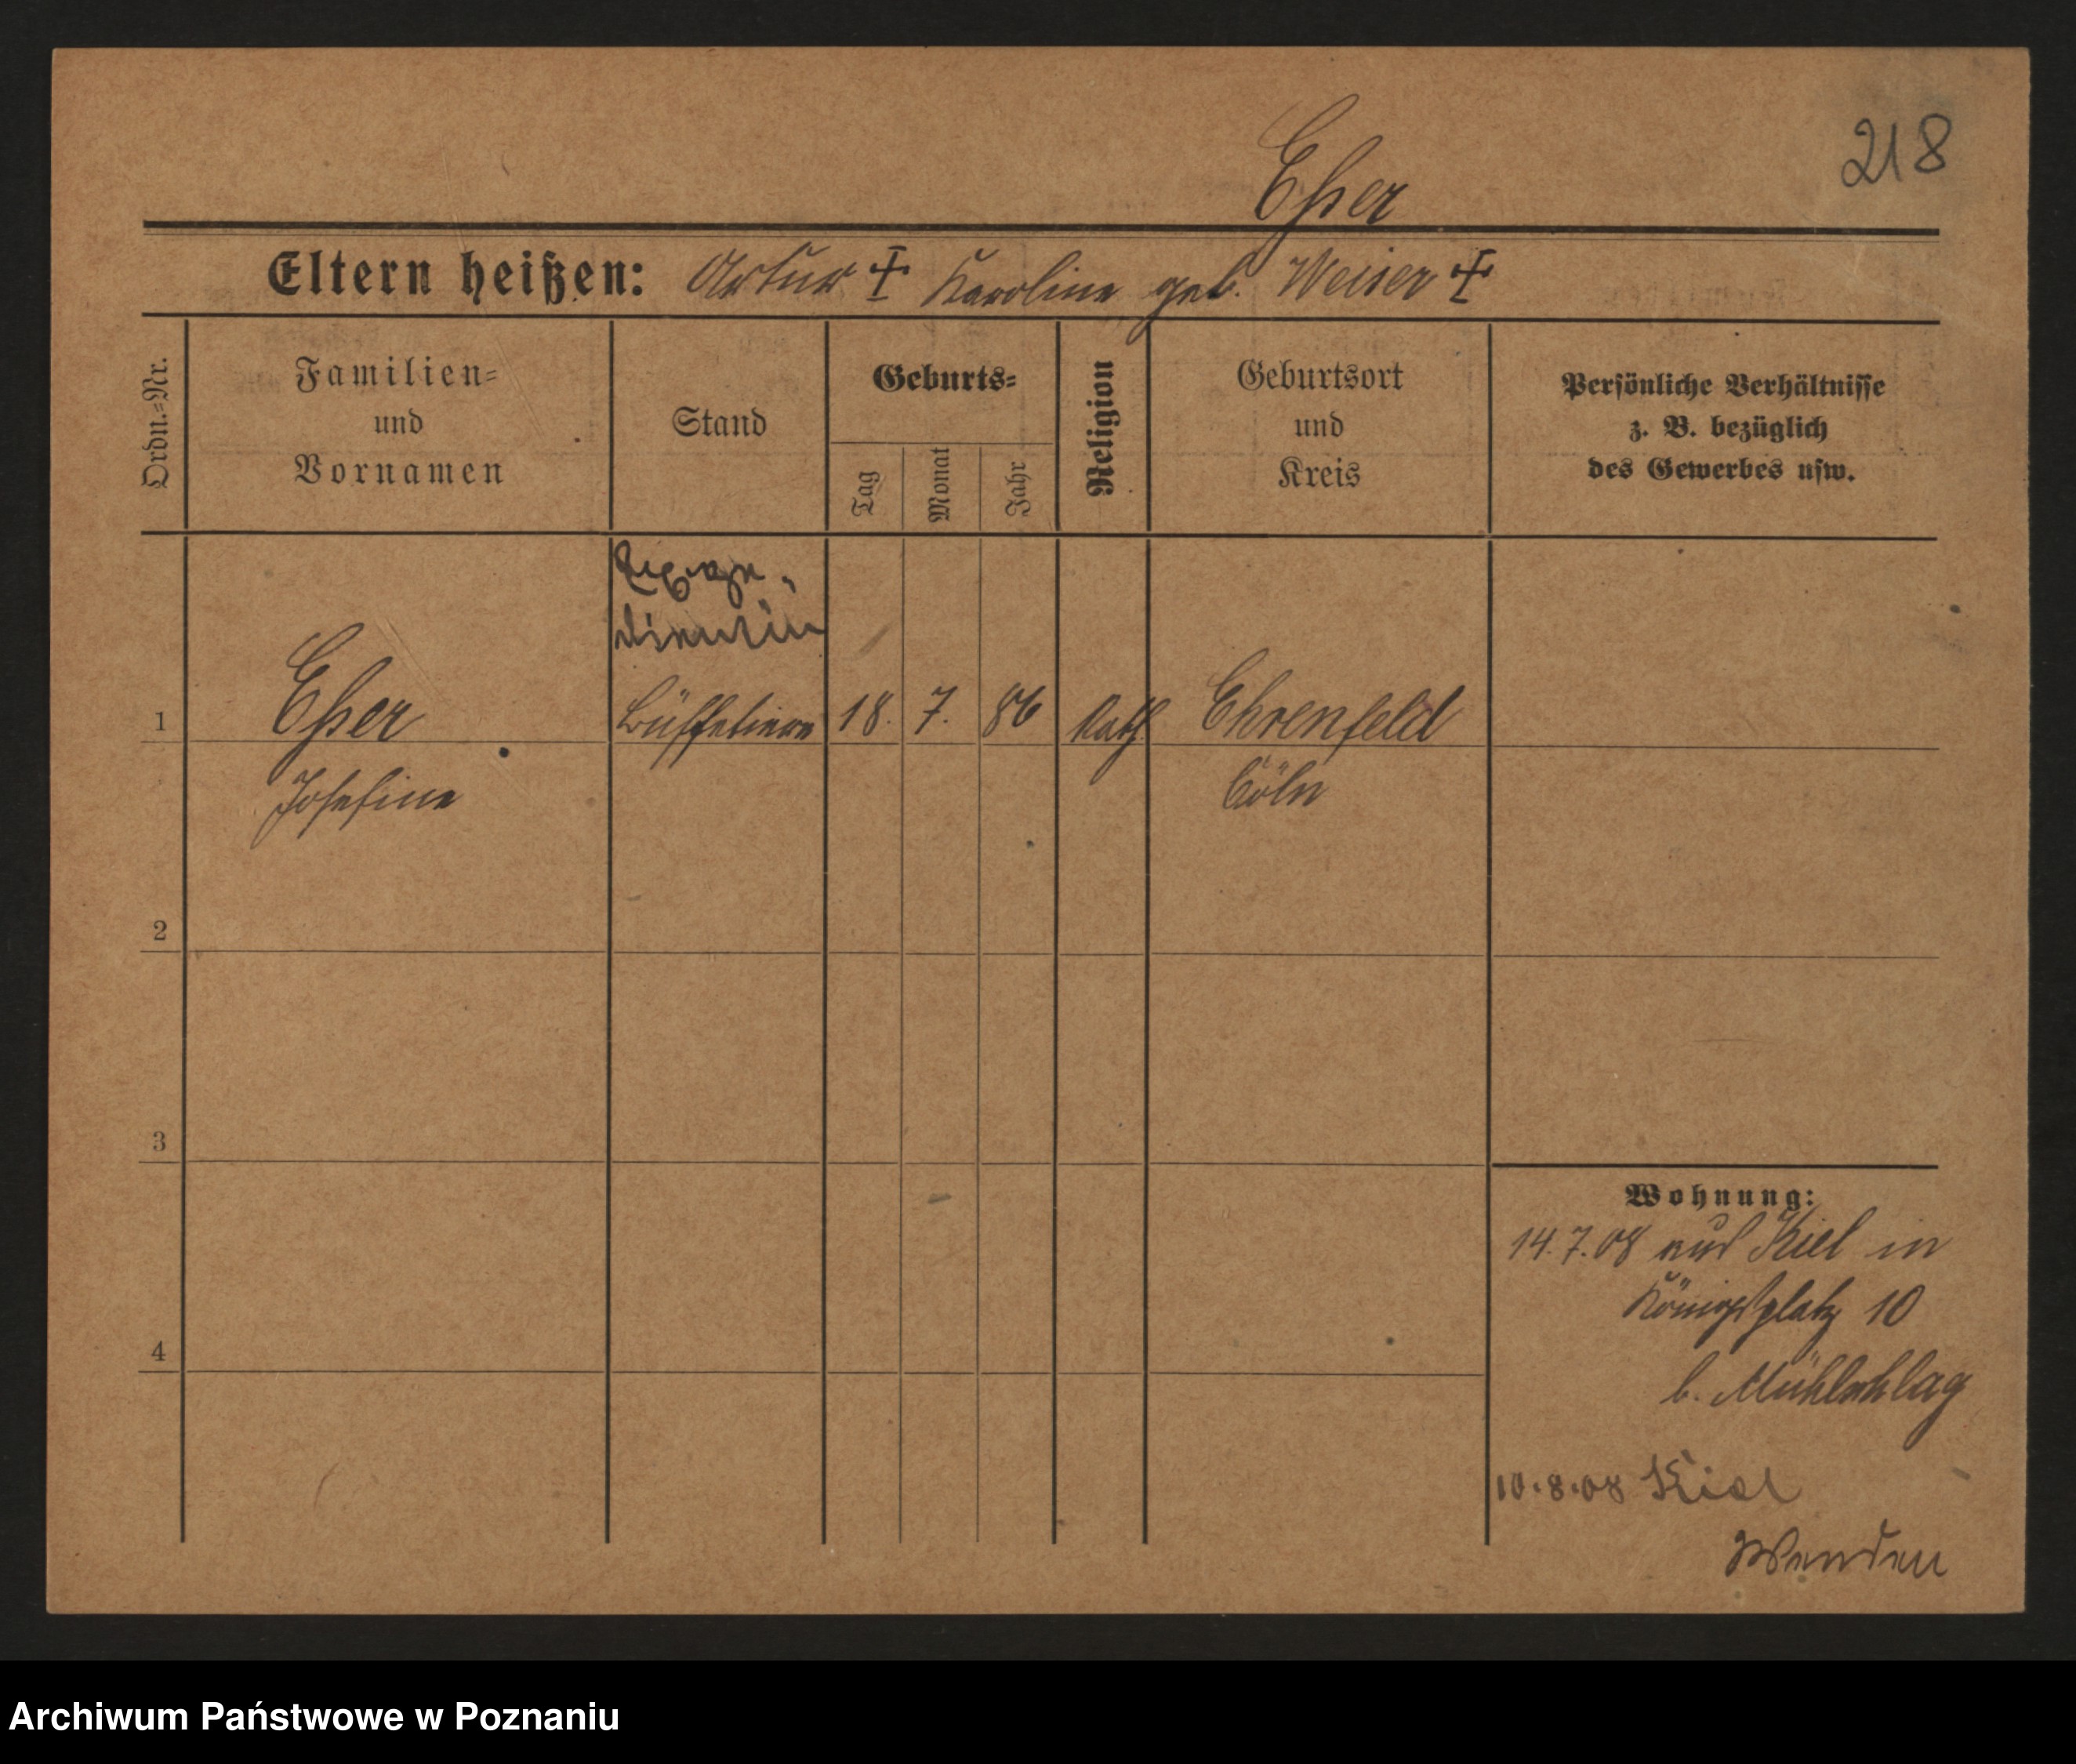 218
Eßer
Eltern heißen: Artur ✝ Karoline geb. Weiser ✝
Ordn.-Nr.
Familien-
und
Vornamen
Stand
Geburts-
Tag
Monat
Jahr
Religion
Geburtsort
und
Kreis
Persönliche Verhältnisse
z. B. bezüglich
des Gewerbes usw.
1 Eßer Büffetiere 18. 7. 86 Kath Ehrenfeld
Josefine Cöln
2
3
4
Wohnung:
14.7.08 aus Kiel in
Königsplatz 10
b. Mühlschlag
10.8.08 Kiel
Wenden
Archiwum Państwowe w Poznaniu